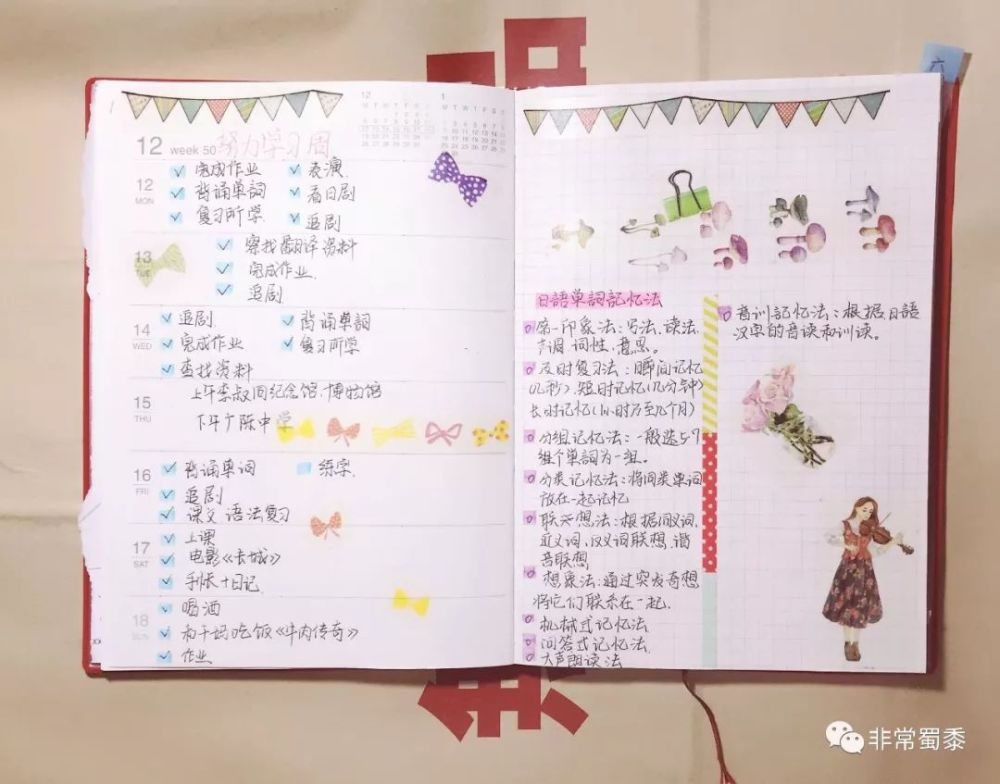 12 week 50 努力学习周
12
MON
完成作业
表演
背诵单詞
看日剧
复习所学
追剧
13
TUE
察找翻译资料
完成作业
追剧
14
WED
追剧
背诵单詞
完成作业
复习所学
查找资料
15
THU
上午李叔同纪念馆、博物馆
下午广陈中学
16
FRI
背诵单词
练字
追剧
课文 语法复习
17
SAT
上课
电影《长城》
手帐+日记
18
SUN
喝酒
和干妈吃饭《牛肉传奇》
作业
12
1
六
日語单詞記忆法
第一印象法:写法、读法、
声调、词性、意思。
及时复习法:瞬间记忆
(几秒)、短时记忆(几分钟)
长时记忆(1小时乃至几个月)
分组记忆法:一般选5-7
组个单詞为一组。
分类记忆法:将同类单词
放在一起记忆
联想法:根据同义词、
近义词、反义词联想、谐
音联想
想象法:通过突发奇想
将它们联系在一起.
机械式记忆法
问答式记忆法
大声朗读法
音训記忆法:根据日語
汉字的音读和训读。
非常蜀黍